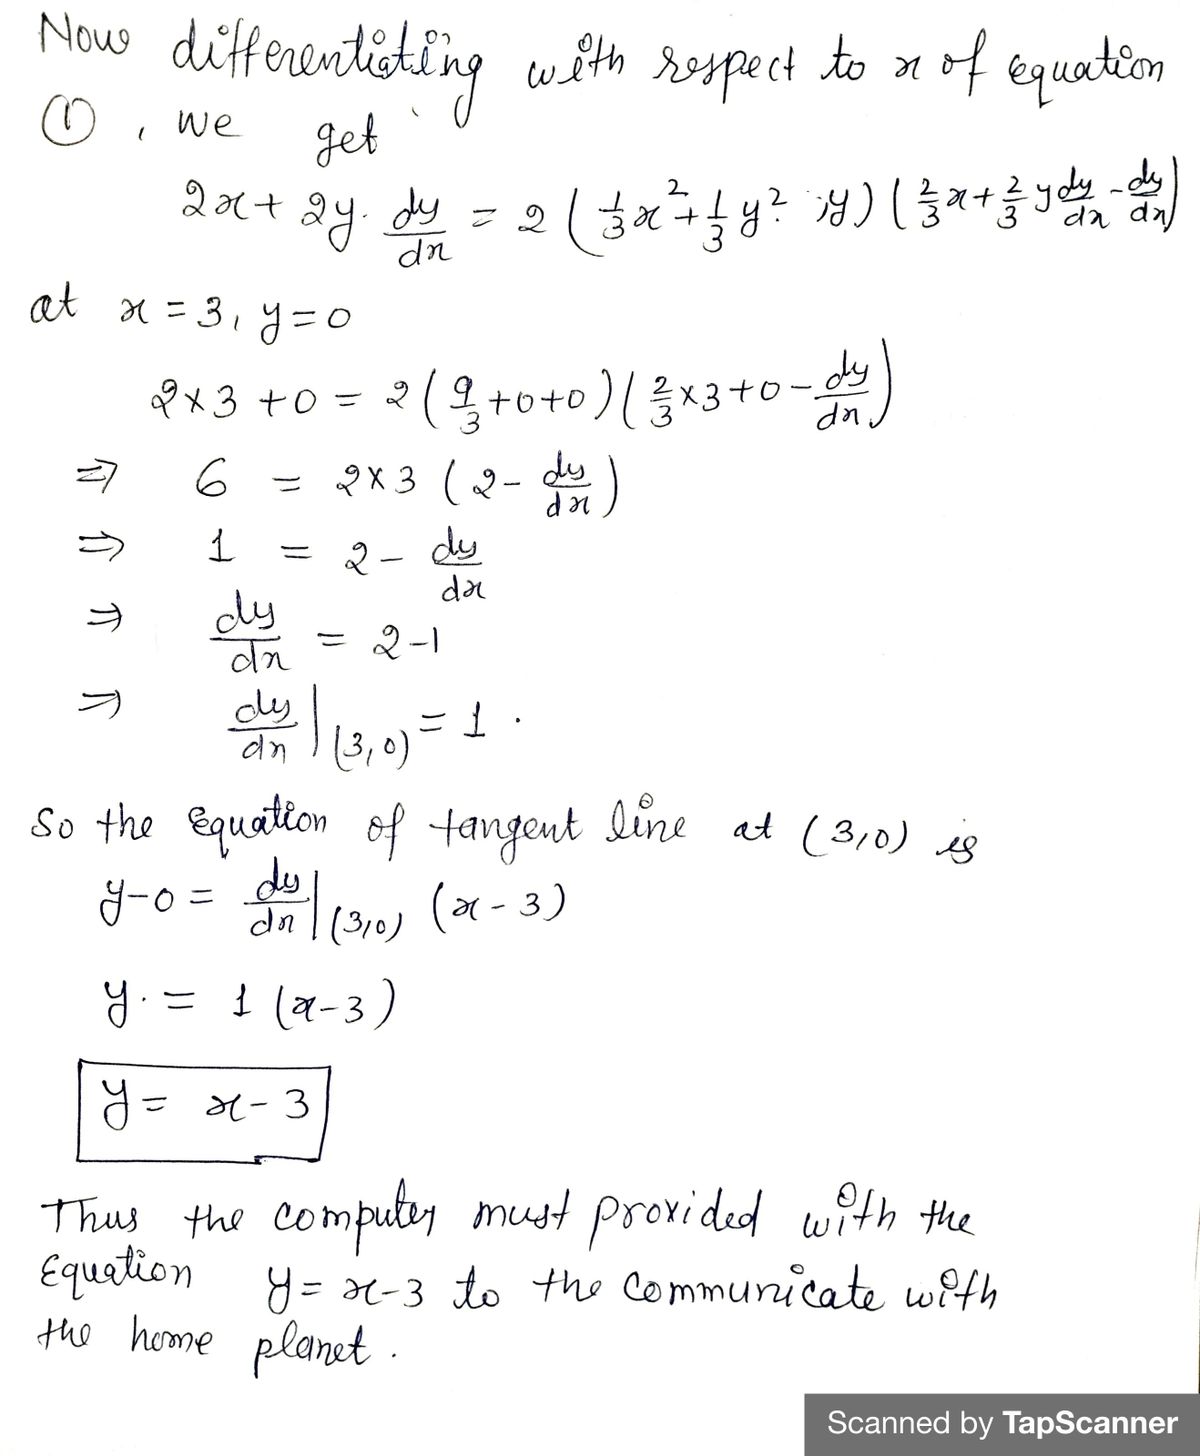 Now differentiating with respect to x of equation
①, we get
2x + 2y. dy/dx = 2 ( 1/3 x² + 1/3 y² - y ) ( 2/3 x + 2/3 y dy/dx - dy/dx )
at x = 3, y = 0
2 × 3 + 0 = 2 ( 9/3 + 0 + 0 ) ( 2/3 × 3 + 0 - dy/dx )
⇒ 6 = 2 × 3 ( 2 - dy/dx )
⇒ 1 = 2 - dy/dx
⇒ dy/dx = 2 - 1
⇒ dy/dx |(3,0) = 1 .
So the Equation of tangent line at (3,0) is
y - 0 = dy/dx |(3,0) (x - 3)
y. = 1 (x - 3)
y = x - 3
Thus the computer must provided with the
Equation y = x - 3 to the communicate with
the home planet .
Scanned by TapScanner